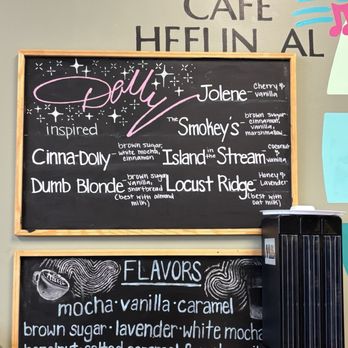 CAFE
HEFLIN AL
Dolly
inspired
Jolene - Cherry &
vanilla
The Smokey's - brown sugar,
cinnamon,
vanilla,
marshmallow
Cinna-Dolly - brown sugar,
white mocha,
cinnamon
Island in the Stream - coconut &
vanilla
Dumb Blonde - brown sugar,
vanilla,
shortbread
(best with almond
milk)
Locust Ridge - Honey &
lavender
(best with
oat milk)
FLAVORS
mocha · vanilla · caramel
brown sugar · lavender · white mocha